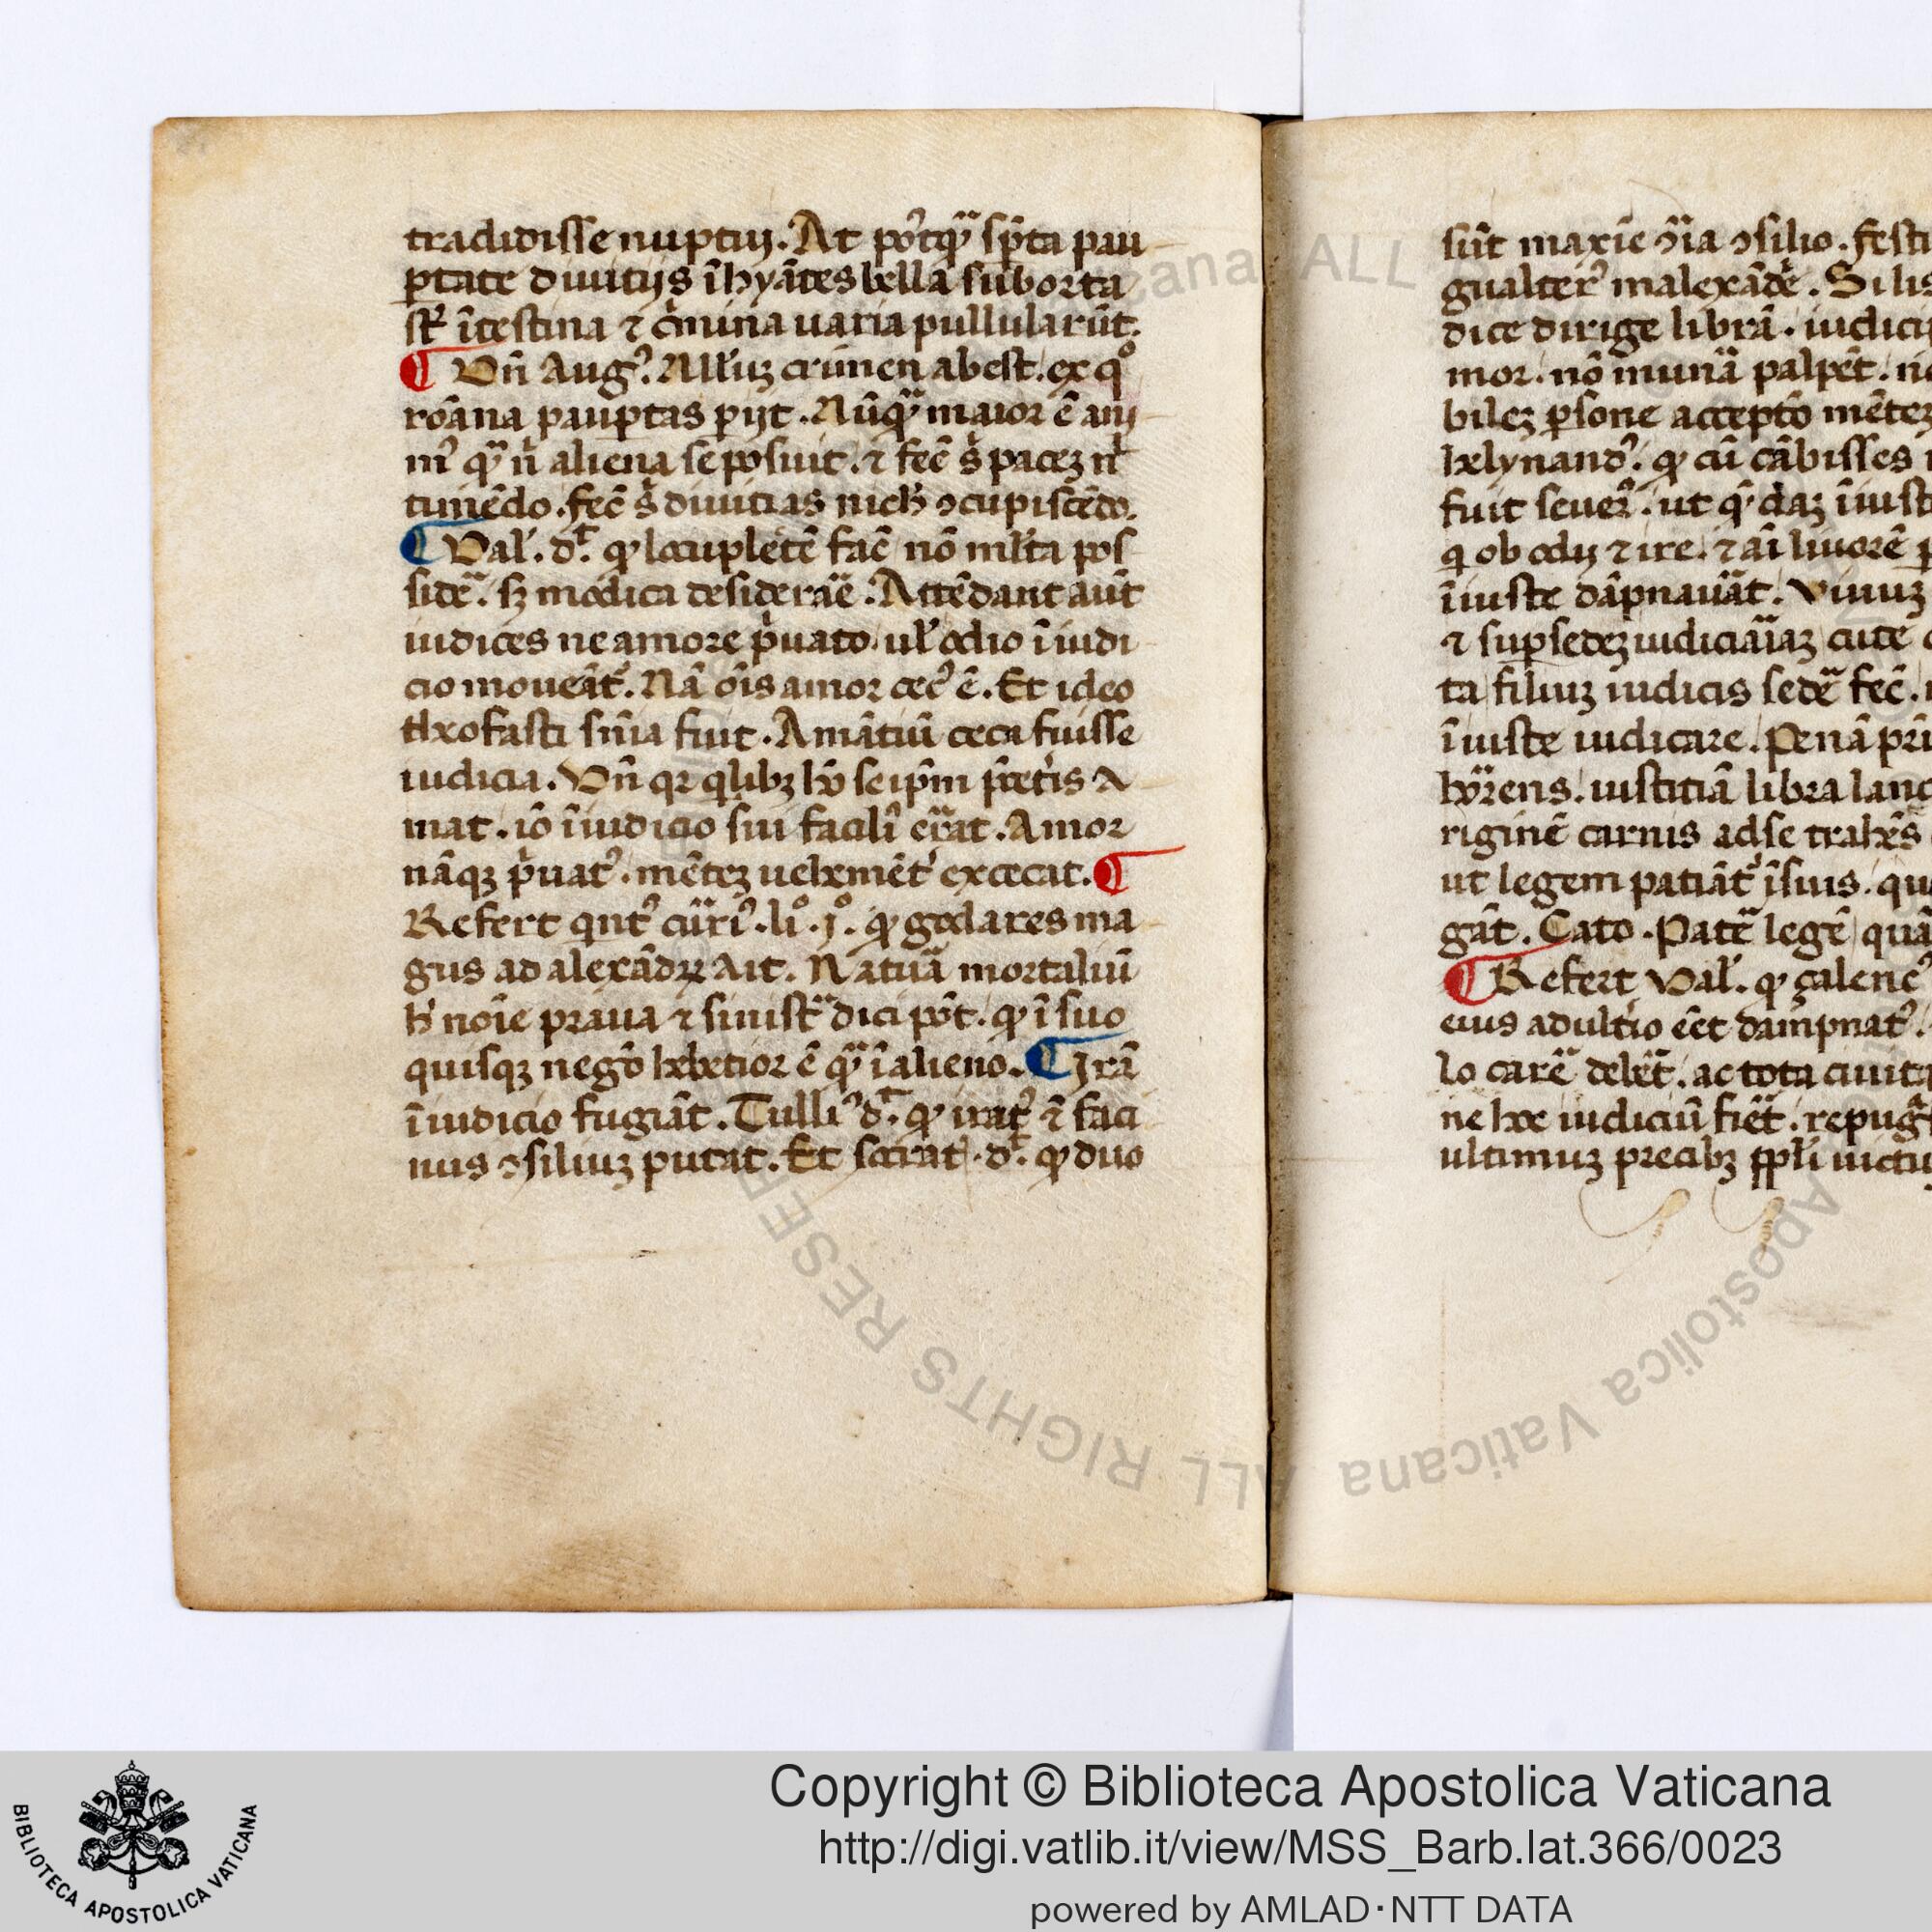 tradidisse nuptiis. At pꝰtq̃ sp̃ta pau
ꝑtate diuitijs ĩhyãtes bella suborta
st̃ ĩtestina ⁊ c̃mina uaria pullularũt.
¶ Vñ Augꝰ. crimen abest. ex qͦ
roãna pauꝑtas ꝑijt. Nũq̃ maior ẽ
q̃ aliena se posuit. ⁊ fec̃ pacez
timẽdo. fec̃ diuitias nich̃ ꝯcupiscẽdo.
¶ Val̃. d̃t ꝙ locupletẽ fac̃ nõ ml̃ta pos
sidẽ. sꝫ modica desiderãe. Attẽdant aũt
iudices ne amore p̃uato ul̃ odio ĩ iudi
cio moueãt᷑. Nã õis amor cecꝰ ẽ. Et ideo
sñia fuit. Amãtiũ ceca fuisse
iudicia. Vñ qꝛ q̃libꝫ seip̃m p̃ ceter̃is a
mat. iõ ĩ iudicio sui facilĩ er̃at. Amor
nãqꝫ p̃uatꝰ. mẽtez uehemẽt̃ excecat. ¶
Refert qñtꝰ cũrꝰ. liͦ. jͦ. ꝙ godares ma
gus ad alexãdꝝ ait. Natuã mortaliũ
h̃ noĩe praua ⁊ sinist̃ dici põt. ꝙ ĩ suo
quisqꝫ negõ hebetior ẽ q̃ ĩ alieno. ¶ Irã
ĩ iudicio fugiãt. Tulliꝰ d̃t. ꝙ iratꝰ faci
nus ꝯsiliuz putat. Et socrat̃. d̃t. ꝙ duo
sũt maxĩe ꝯ̃ia ꝯsilio. festi
gualterꝰ ĩ alexãde.
dice dirige librã. iudici
mor. nõ munã palpẽt.
bilez ꝑsone accepto mẽtez
helynandꝰ. ꝙ cũ cãbisses
fuit seuerꝰ. ut q̃ daz ĩiust
q̃ ob odij ⁊ ire. ⁊ ãi liuorẽ
ĩiuste dãpnauãt. Viuuz
⁊ suꝑ sedez iudiciaĩaz cute
ta filiuz iudicis sedẽ fec̃.
ĩiuste iudicare. Penã pr̃i
hor̃ens. iustitiã libra lanc
riginẽ carnis ad se trahẽs
ut legem patiãt᷑ ĩ suis. qu
gãt. Cato. Patẽ legẽ quã
¶ Refert Val̃. ꝙ calencꝰ
eius adultĩo ẽet dampnatꝰ.
lo carẽ debẽt. ac tota ciuita
ne hoc iudiciũ fiẽt. repug̃
ultimuz precibꝫ ꝑpl̃i uictu
Copyright © Biblioteca Apostolica Vaticana
http://digi.vatlib.it/view/MSS_Barb.lat.366/0023
powered by AMLAD·NTT DATA
BIBLIOTECA APOSTOLICA VATICANA